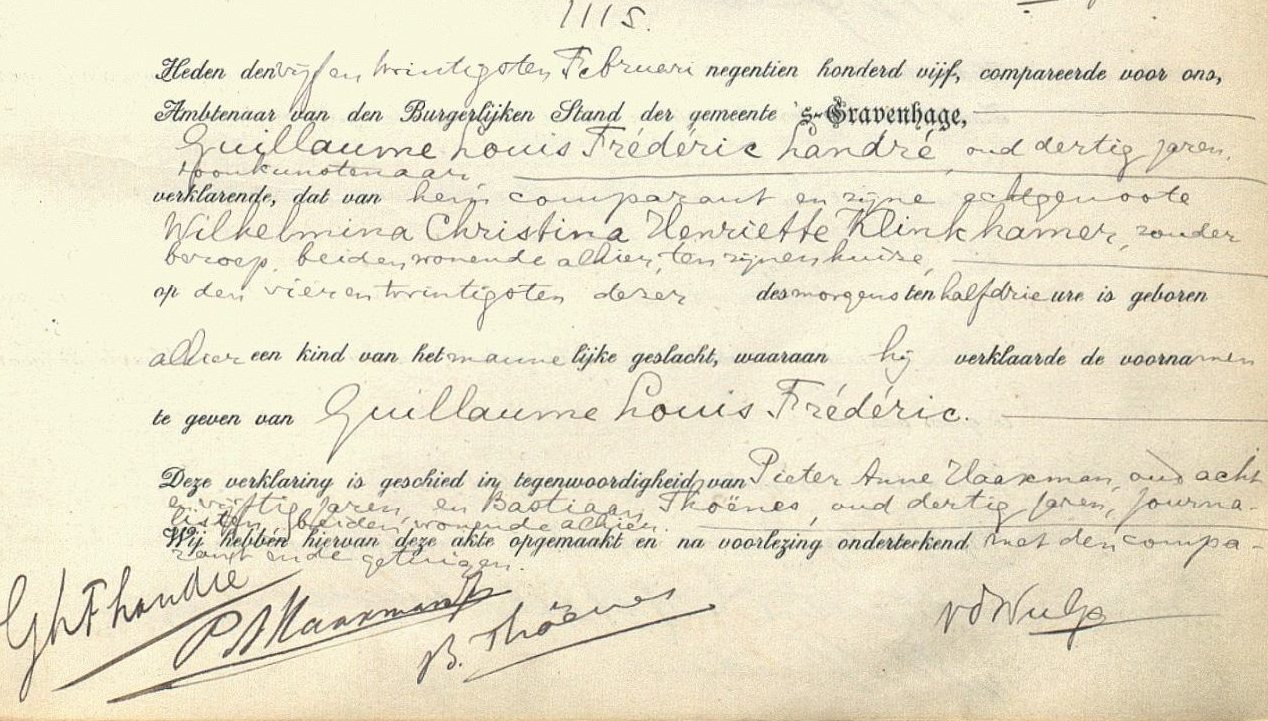 1115.
Heden den vijf en twintigsten Februari negentien honderd vijf, compareerde voor ons,
Ambtenaar van den Burgerlijken Stand der gemeente 's-Gravenhage,
Guillaume Louis Frédéric Landré, oud dertig jaren,
toonkunstenaar,
verklarende, dat van hem comparant en zijne echtgenoote
Wilhelmina Christina Henriette Klinkhamer, zonder
beroep, beiden wonende alhier, ten zijnen huize,
op den vier en twintigsten dezer des morgens ten half drie ure is geboren
alhier een kind van het mannelijke geslacht, waaraan hij verklaarde de voornamen
te geven van Guillaume Louis Frédéric.
Deze verklaring is geschied in tegenwoordigheid van Pieter Anne Haaxman, oud acht
en vijftig jaren, en Bastiaan Thoënes, oud dertig jaren, journa-
listen, beiden wonende alhier.
Wij hebben hiervan deze akte opgemaakt en na voorlezing onderteekend met den compa-
rant en de getuigen.
GLFLandré
PAHaaxman
B. Thoënes
vdWulp